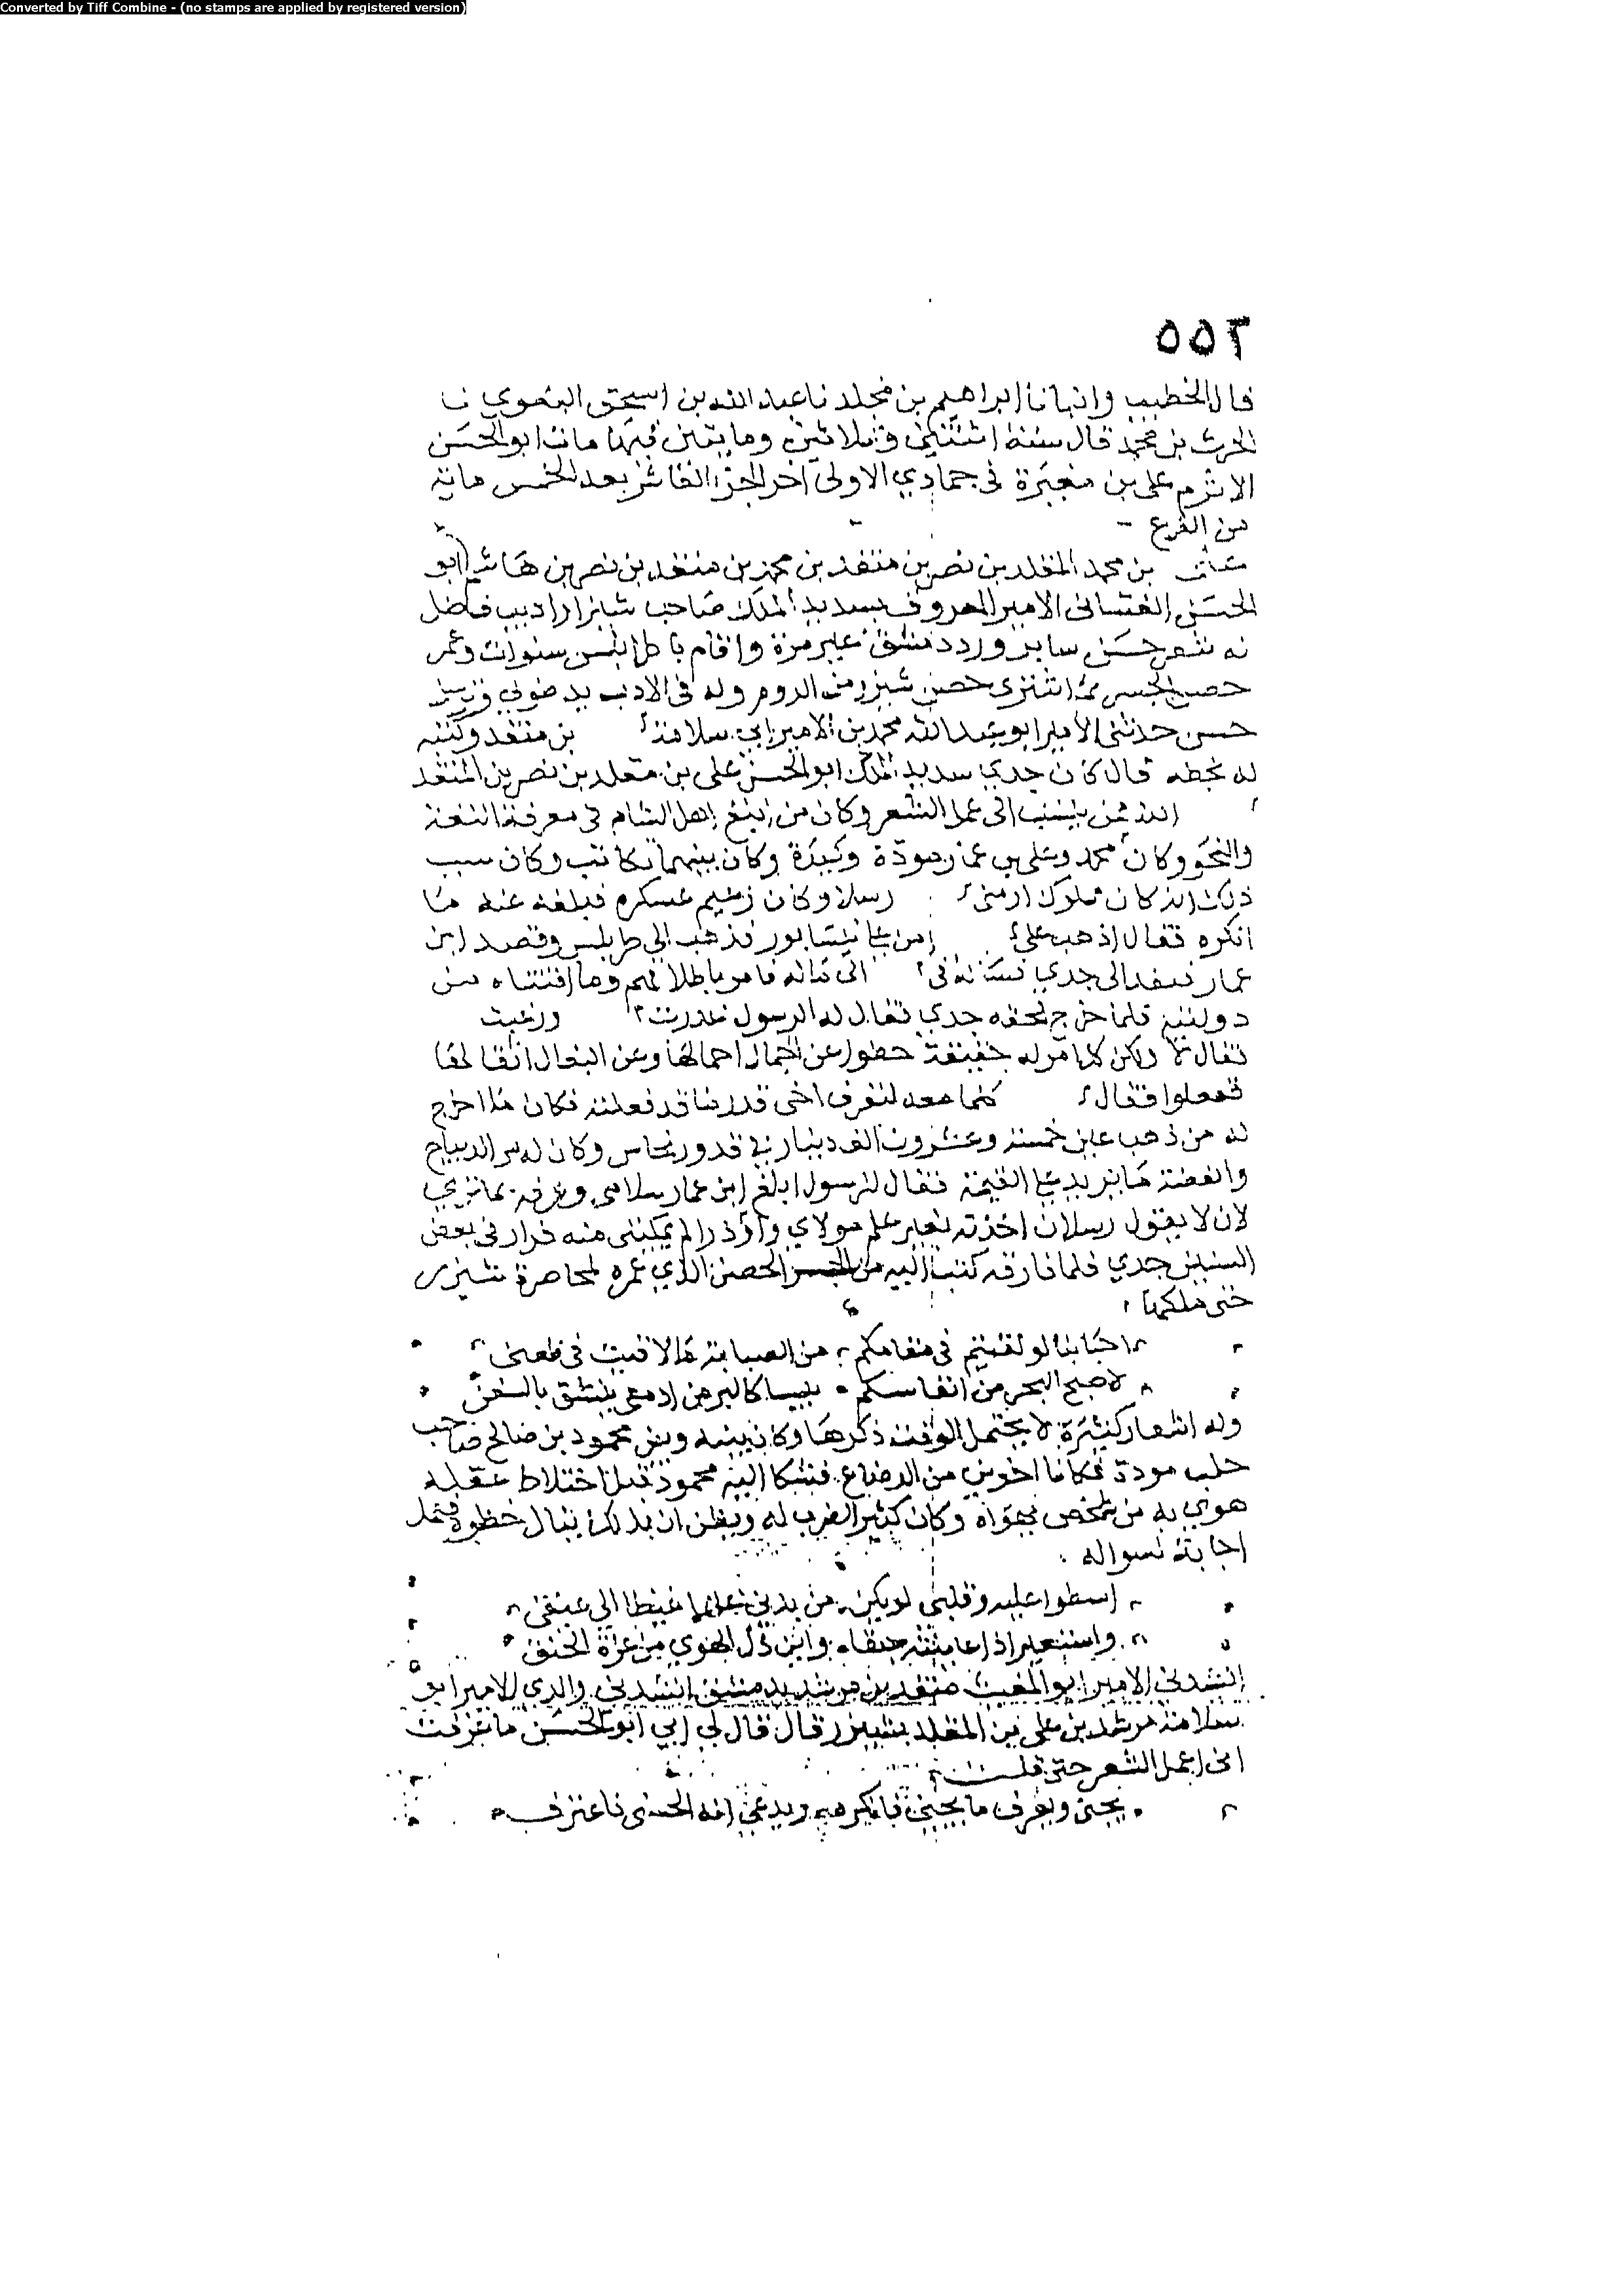 Converted by Tiff Combine - (no stamps are applied by registered version)
٥٥٣
قال الخطيب وانبانا ابراهيم بن مخلد نا عبد الله بن اسحق البغوي نا
الحرث بن محمد قال سنة اثنتين وثلاثين ومايتين فيها مات ابو الحسن
الاثرم علي بن مغيرة في جمادي الاولى اخر الجزء العاشر بعد الخمس ماية
من الفرع
علي بن محمد المقلد بن نصر بن منقذ بن محمد بن منقذ بن نصر بن هاشم ابو
الحسن الغساني الامير المعروف بسديد الملك صاحب شيزر اديب فاضل
له شعر حسن ساير ورد دمشق غير مرة واقام باطرابلس سنوات وعمر
حصن الجسر ثم اشترى حصن شيزر من الروم وله في الادب يد طولي
حسن حدثني الامير ابو عبد الله محمد بن الامير ابي سلامة بن منقذ وكتبه
له بخطه قال كان جدي سديد الملك ابو الحسن علي بن مقلد بن نصر بن المنقذ
ينسب الى عمل الشعر وكان من اهل الشام في معرفة اللغة
والنحو وكان محمد وعلي بن عمار مودة وكيدة وكان بينهما تكاتب وكان سبب
ذلك انه كان مملوك ارمني رسلا وكان زعيم عسكره فبلغه عنه ما
انكره فقال اذهب على فذهب الى طرابلس وقصد ابن
عمار الى جدي الى ماله فامر باطلاقهم وما اقتناه من
دولته فلما خرج لحقه جدي فقال له الرسول غدرت ورغبت
فقال لا ولكن حطوا عن الجمال احمالها وعن البغال اثقالها
ففعلوا فقال معه ليعرف اخي قدر ما قد فعلته فكان ما اخرج
له من ذهب عين خمسة وعشرون الف دينار في قدور نحاس وكان له من الديباج
والفضة ما يزيد على القيمة فقال للرسول ابلغ ابن عمار سلامي وعرفه بما
لان لا يقول رسلان اخذته بغير علم مولاي لم يمكنني منه فزار في بعض
السنين جدي فلما فارقه كتب اليه من الحصن الذي عمره لمحاصرة شيزر
حتى ملكها
احبابنا لو لقيتم في مقامكم من الصبابة ما لاقيت في ظعني
لاصبح البحر من انفاسكم يبسا كالبر من ادمعي ينشق بالسفن
وله اشعار كثيرة لا يحتمل الوقت ذكرها وكان بينه وبين محمود بن صالح صاحب
حلب مودة فكانا اخوين من الرضاع فشكا اليه محمود قبل اختلاط عقله
هوي به من شخص يهواه وكان كثير الضرب له ويظن ان بذلك ينال حظوة فعمل
اجابة لسواله
اسطوا عليه وقلبي لو يكن من يدي غلهما غيظا الى عنقي
واستعير اذا عاينته حنقا واين ذل الهوي من عزة الحنق
انشدني الامير ابو المغيث منقذ بن مرشد بدمشق انشدني والدي الامير ابو
سلامة مرشد بن علي بن المقلد بشيزر قال قال لي ابي ابو الحسن ما عرفت
اني اعمل الشعر حتى قلت
يجني ويعرف ما يجني فانكره ويدعي انه الحسنى فاعترف